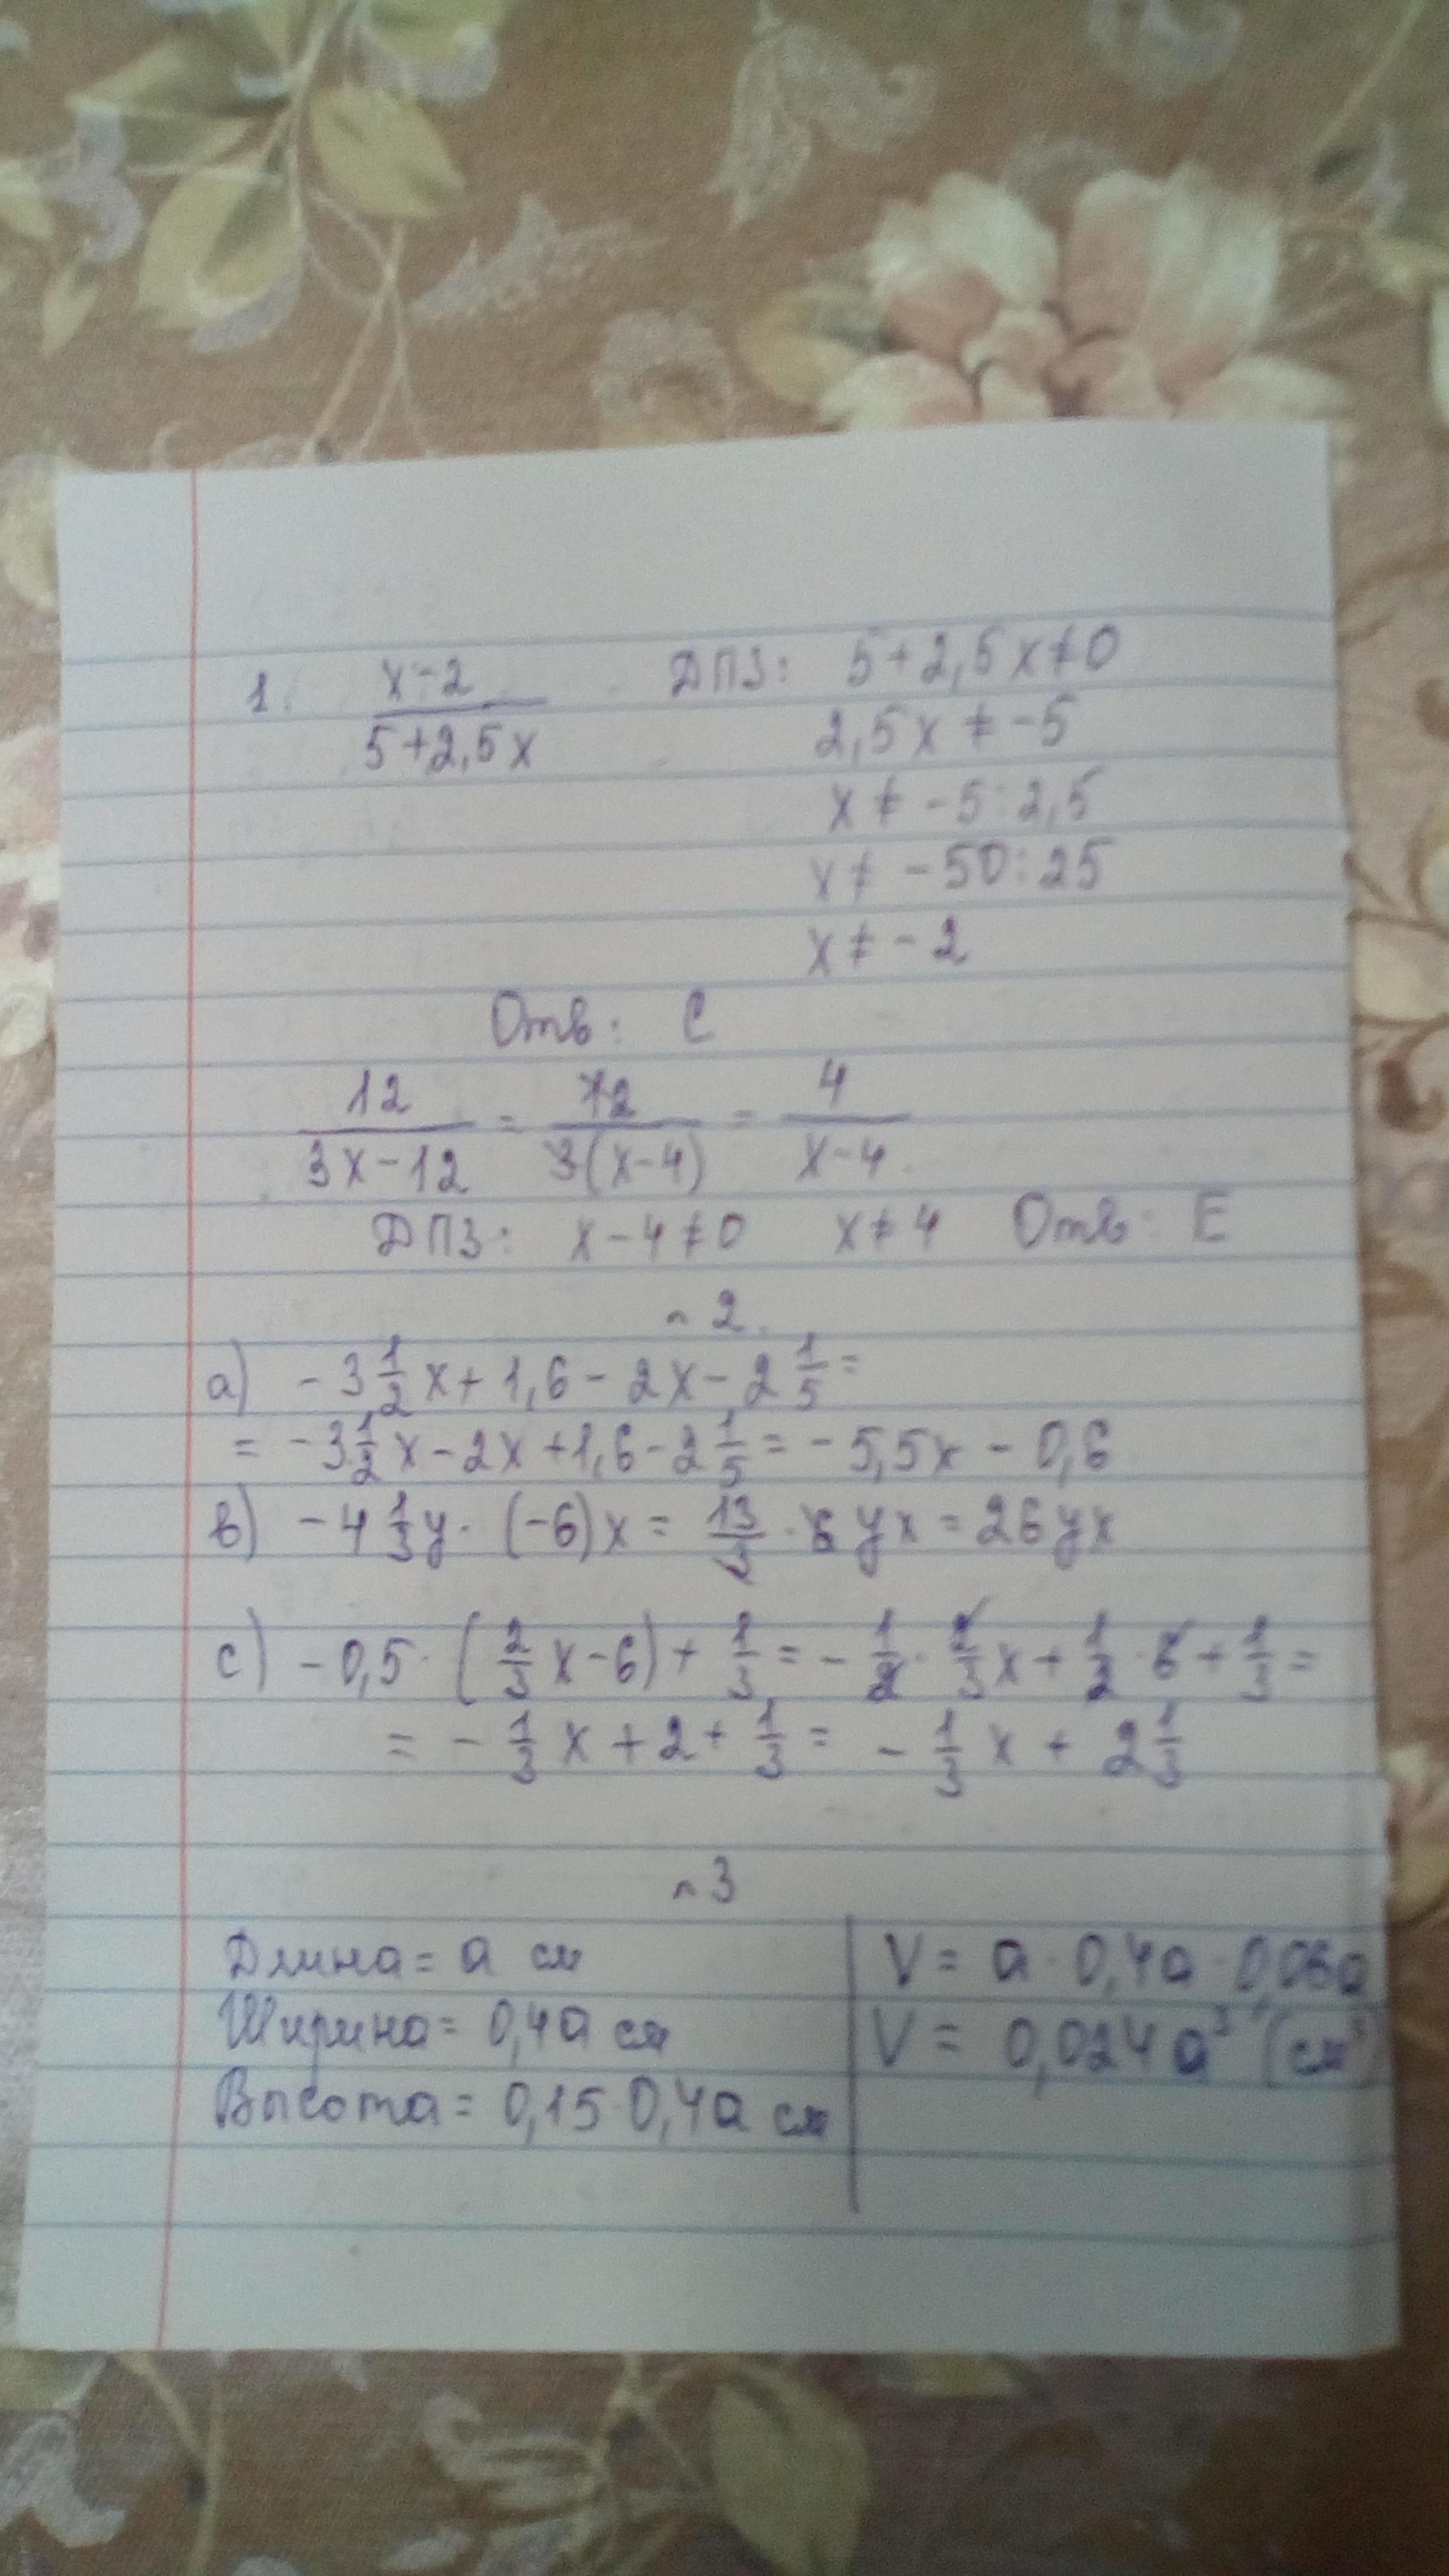 1. x-2/5+2,5x ДПЗ: 5+2,5x≠0
2,5x ≠ -5
x ≠ -5:2,5
x ≠ -50:25
x ≠ -2
Отв: C
12/3x-12 = 12/3(x-4) = 4/x-4
ДПЗ: x-4≠0 x≠4 Отв: E
~2.
a) -3 1/2 x + 1,6 - 2x - 2 1/5 =
= -3 1/2 x - 2x + 1,6 - 2 1/5 = -5,5x - 0,6
в) -4 1/3 y · (-6)x = 13/3 · 6 yx = 26yx
c) -0,5 · (2/3 x - 6) + 1/3 = - 1/2 · 2/3 x + 1/2 · 6 + 1/3 =
= - 1/3 x + 2 + 1/3 = - 1/3 x + 2 1/3
~3
Длина = a см
Ширина = 0,4a см
Высота = 0,15·0,4a см
V = a · 0,4a · 0,06a
V = 0,024a³ (см³)